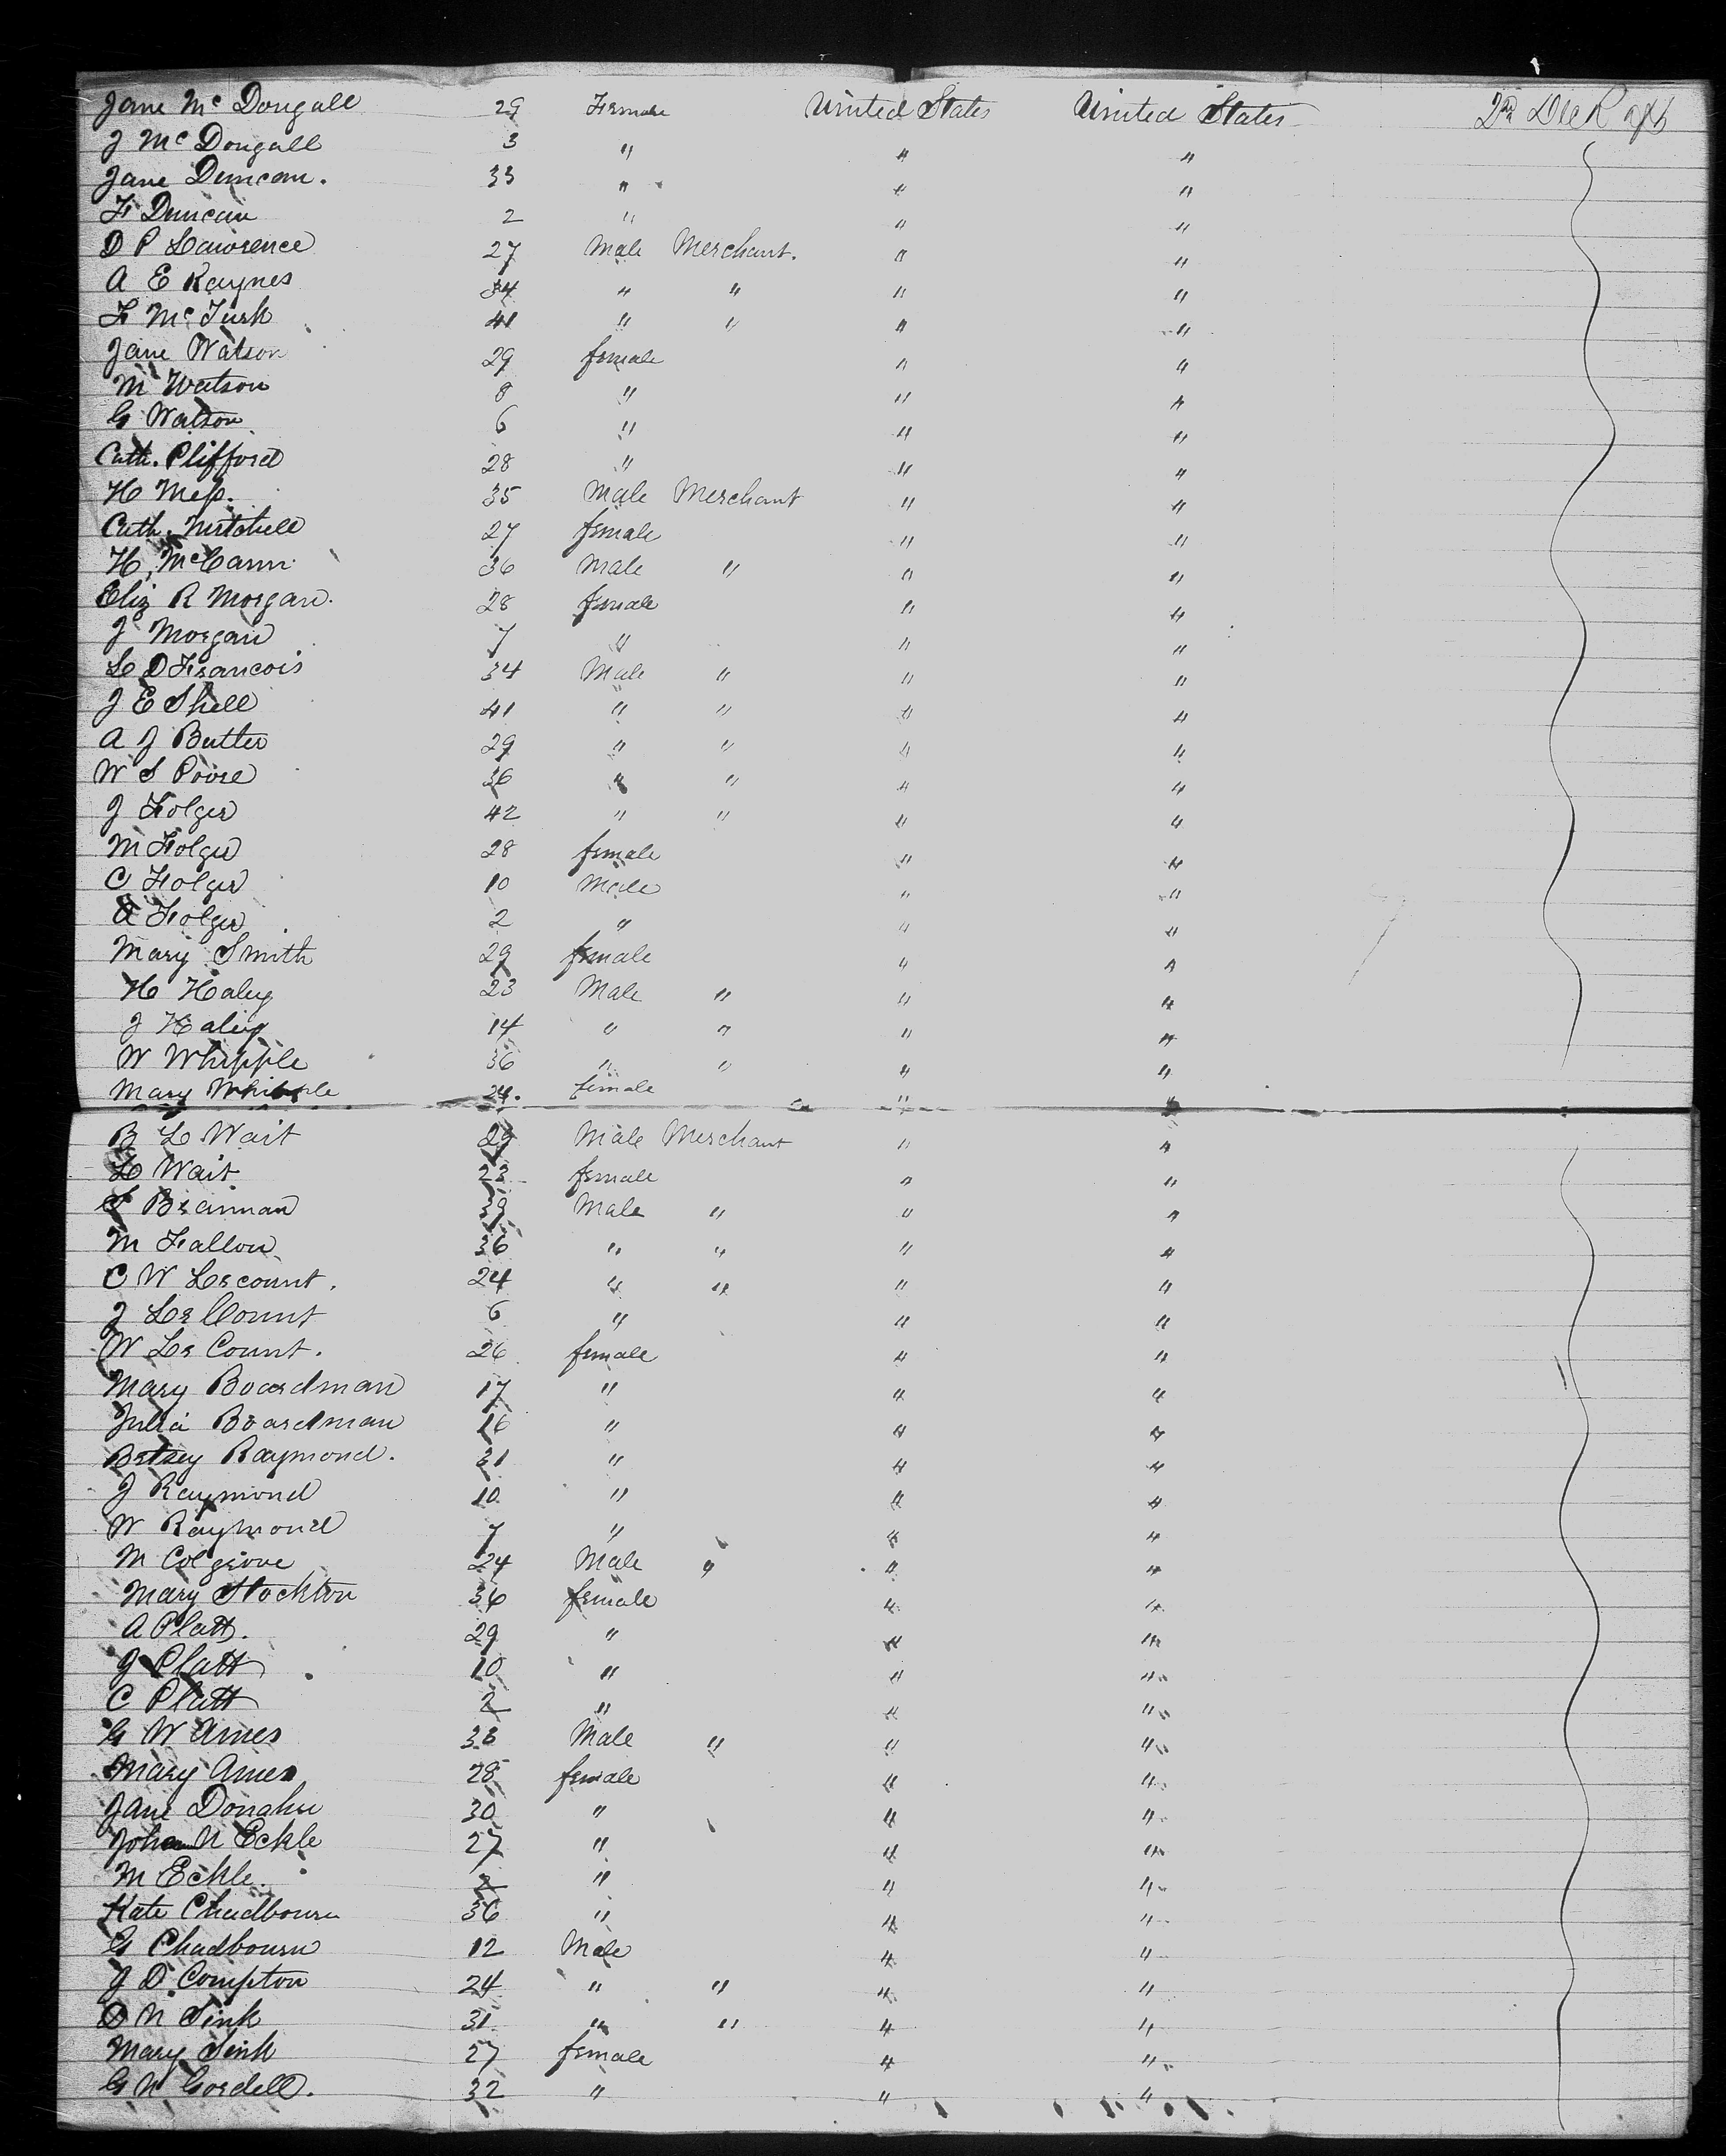 Jane Mc Dougall 29 Female United States United States 2nd Deck aft
J Mc Dougall 3 " " "
Jane Duncan. 33 " " "
F Duncan 2 " " "
D P Lawrence 27 Male Merchant. " "
A E Raynes 34 " " " "
F Mc Turk 41 " " " "
Jane Watson 29 female " "
M Watson 8 " " "
G Watson 6 " " "
Cath. Clifford 28 " " "
H Mess. 35 Male Merchant " "
Cath. Mitchell 27 female " "
H. McCann 36 Male " " "
Eliz R Morgan. 28 female " "
J Morgan 7 " " "
L D Francois 34 Male " " "
J E Shell 41 " " " "
A J Butler 29 " " " "
W S Poore 36 " " " "
J Folger 42 " " " "
M Folger 28 female " "
C Folger 10 Male " "
A Folger 2 " " "
Mary Smith 29 female " "
H Haley 23 Male " " "
J Haley 14 " " " "
W Whipple 36 " " " "
Mary Whipple 24. female " "
B L Wait 29 Male Merchant " "
L Wait 23 female " "
S Brannan Male " " "
M Fallon 36 " " " "
C W Lecount. 24 " " " "
J Le Count 6 " " "
W Le Count. 26 female " "
Mary Boardman 17 " " "
Julia Boardman 16 " " "
Betsey Raymond. 31 " " "
J Raymond 10 " " "
W Raymond 7 " " "
M Colgrove 24 Male " " "
Mary Stockton 36 female " "
A Platt. 29 " " "
J Platt 10 " " "
C Platt 2 " " "
G W Ames 33 Male " " "
Mary Ames 28 female " "
Jane Donahu 30 " " "
N Eckle 27 " " "
M Eckle. 2 " " "
Kate Chadbourn 36 " " "
G Chadbourn 12 Male " "
J D Compton 24 " " " "
D N Sink 31 " " " "
Mary Sink 27 female " "
G W Gordell. 32 " " "